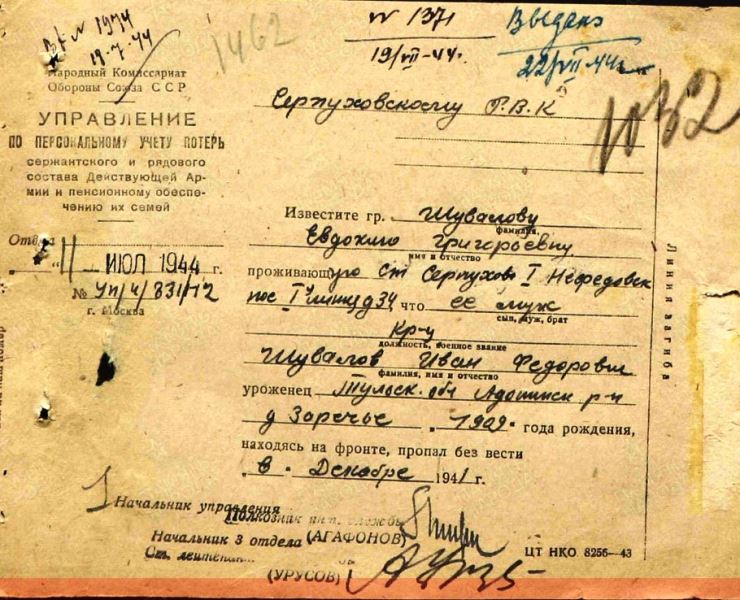 Вх № 1974
19-7-44
1462
№ 1371
19/VII-44г.
Выдано
22/VII-44г.
1032
Народный Комиссариат
Обороны Союза ССР
УПРАВЛЕНИЕ
ПО ПЕРСОНАЛЬНОМУ УЧЕТУ ПОТЕРЬ
сержантского и рядового
состава Действующей Ар-
мии и пенсионному обеспе-
чению их семей
Отдел
11 ИЮЛ 1944 г.
№ УП/4/831/12
г. Москва
Серпуховскому Р.В.К
Известите гр. Шувалову
фамилия,
Евдокию Григорьевну
имя и отчество
проживающую ст Серпухов I Нефедовск
пос I линия д 34 что ее муж
сын, муж, брат
Кр-ц
должность, военное звание
Шувалов Иван Федорович
фамилия, имя и отчество
уроженец Тульск. обл р-н
д Заречье . 1909 года рождения,
находясь на фронте, пропал без вести
в " Декабре 1941 г.
Начальник управления
Полковник инт. службы
(АГАФОНОВ)
Начальник 3 отдела
Ст. лейтенант
(УРУСОВ)
ЦТ НКО 8256—43
Линия загиба